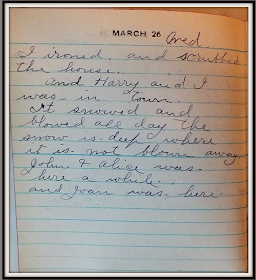 MARCH 26 Wed.
I ironed. and scrubbed
the house.
and Harry and I
was in Town.
It snowed and
blowed all day the
snow is deep where
it is not blown away.
John & Alice was
here a while.
and Joan was here.